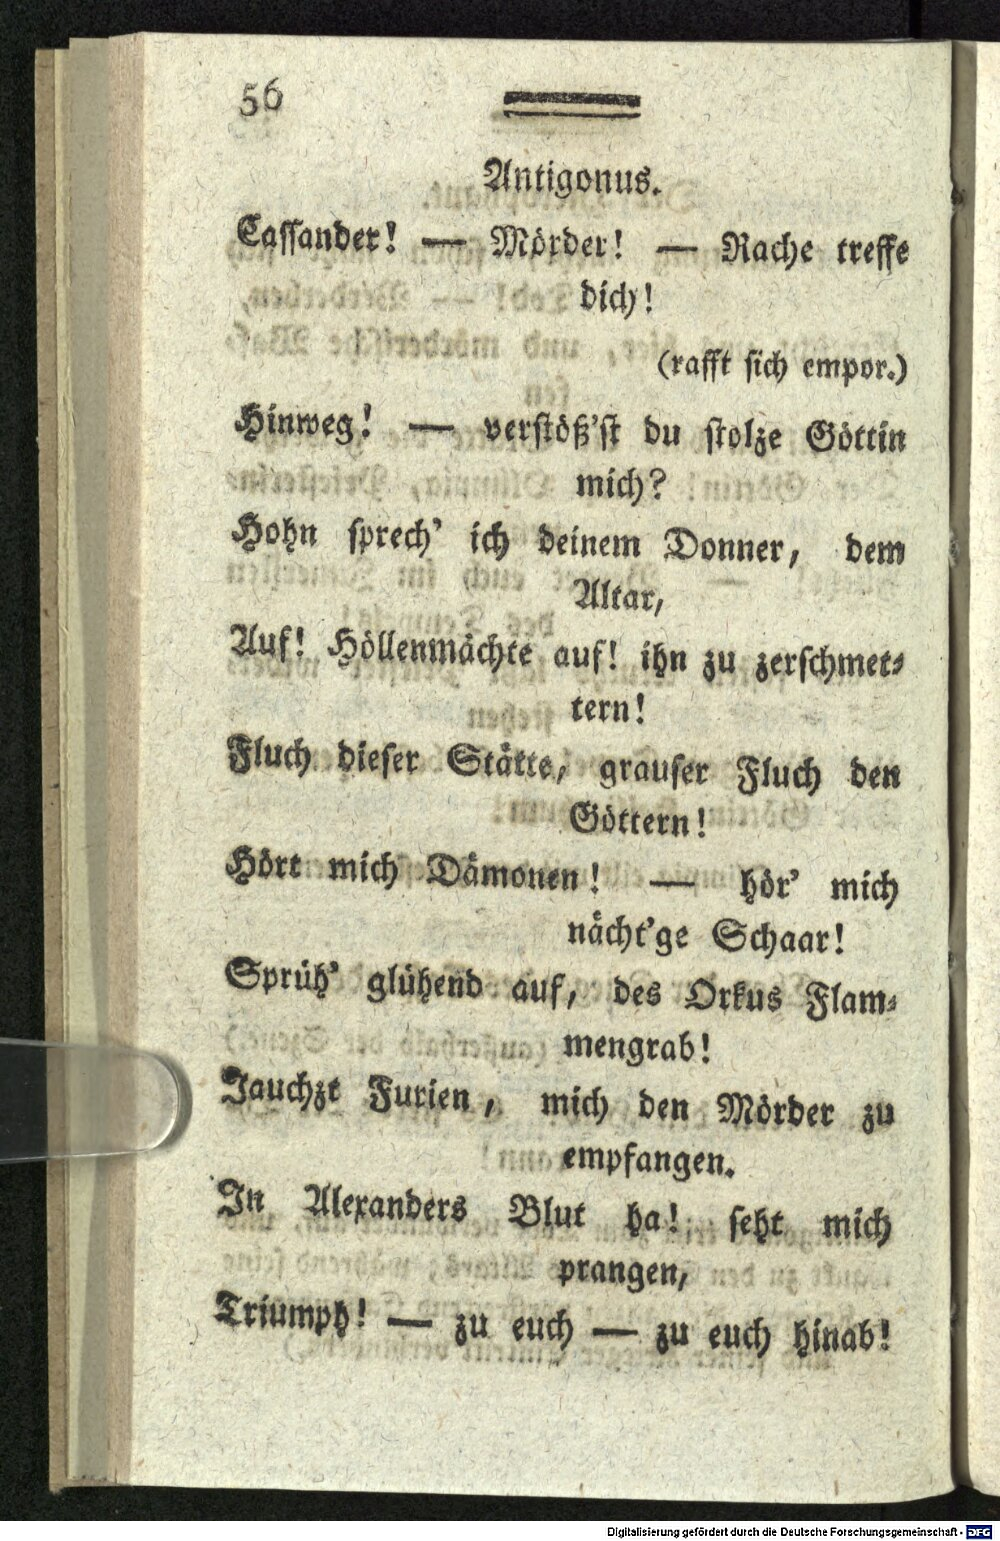 56
Antigonus.
Cassander! — Mörder! — Rache treffe
dich!
(rafft sich empor.)
Hinweg! — verstöß'st du stolze Göttin
mich?
Hohn sprech' ich deinem Donner, dem
Altar,
Auf! Höllenmächte auf! ihn zu zerschmet-
tern!
Fluch dieser Stätte, grauser Fluch den
Göttern!
Hört mich Dämonen! — hör' mich
nächt'ge Schaar!
Sprüh' glühend auf, des Orkus Flam-
mengrab!
Jauchzt Furien, mich den Mörder zu
empfangen.
In Alexanders Blut ha! seht mich
prangen,
Triumph! — zu euch — zu euch hinab!
Digitalisierung gefördert durch die Deutsche Forschungsgemeinschaft - DFG